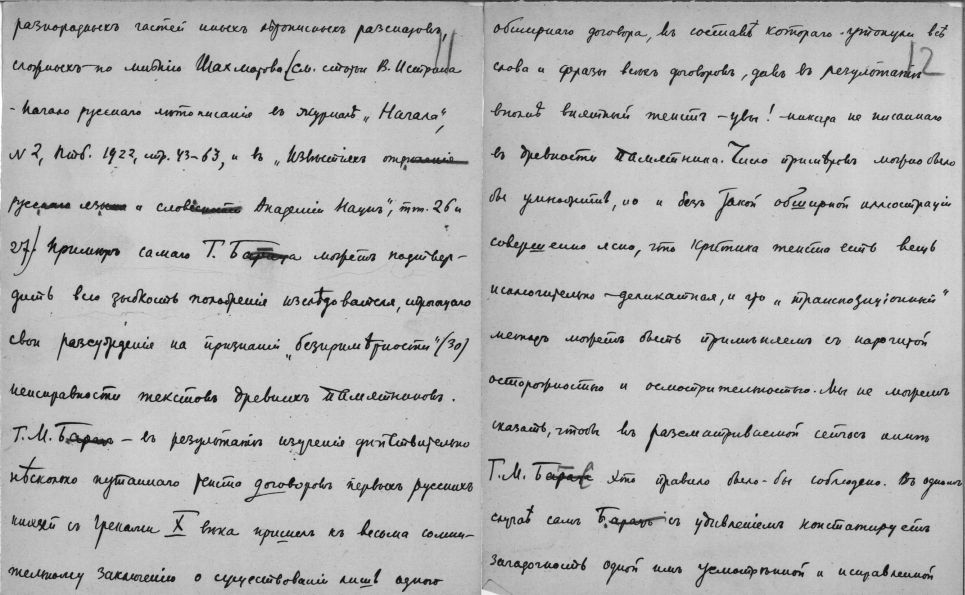 11
разнородныхъ частей иныхъ лѣтописныхъ разсказовъ,
сложныхъ по мнѣнію Шахматова (см. статьи В. Истрина
- Начало русскаго лѣтописанія въ журналѣ „Начала“,
№ 2, Птб. 1922, стр. 43-63, и въ „Извѣстіяхъ отдѣленія
русскаго языка и словесности Академіи Наукъ“, тт. 26 и
27) Примѣръ самаго Г. Бараца можетъ подтвер-
дить всю зыбкость построенія изслѣдователя,
свои разсужденія на признаніи „безпримѣрности“ (30)
неисправности текстовъ древнихъ Памятниковъ.
Г. М. Барацъ – въ результатѣ изученія дѣйствительно
нѣсколько путаннаго текста договоровъ первыхъ русскихъ
князей съ Греками X вѣка пришелъ къ весьма сомни-
тельному заключенію о существованіи лишь одного
12
обширнаго договора, въ составѣ котораго утонули всѣ
слова и фразы всѣхъ договоровъ, давъ въ результатѣ
вполнѣ внятный текстъ – увы! – никогда не писаннаго
въ древности Памятника. Число примѣровъ можно было
бы умножить, но и безъ такой обширной иллюстраціи
совершенно ясно, что критика текста есть вещь
исключительно – деликатная, и что „транспозиціонный“
методъ можетъ быть примѣняемъ съ нарочитой
осторожностью и осмотрительностью. Мы не можемъ
сказать, чтобы въ разсматриваемой сейчасъ книгѣ
Г. М. Бараца это правило было-бы соблюдено. Въ одномъ
случаѣ самъ Барацъ съ удивленіемъ констатируетъ
загадочность одной имъ усмотрѣнной и исправленной